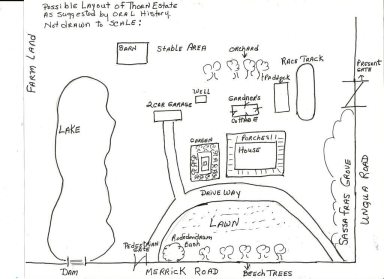 Possible Layout of Thorn Estate
As suggested by ORAL History.
Not drawn to SCALE:
FARM LAND
BARN
STABLE AREA
ORCHARD
RACE TRACK
PADDOCK
PRESENT
GATE
WELL
GARDNER'S
COTTAGE
2 CAR GARAGE
LAKE
GARDEN
PORCHES
HOUSE
SASSAFRAS GROVE
UNQUA ROAD
DRIVEWAY
LAWN
PEDESTRIAN
GATE
Rododendrum
Bank
DAM
MERRICK ROAD
BEECH TREES